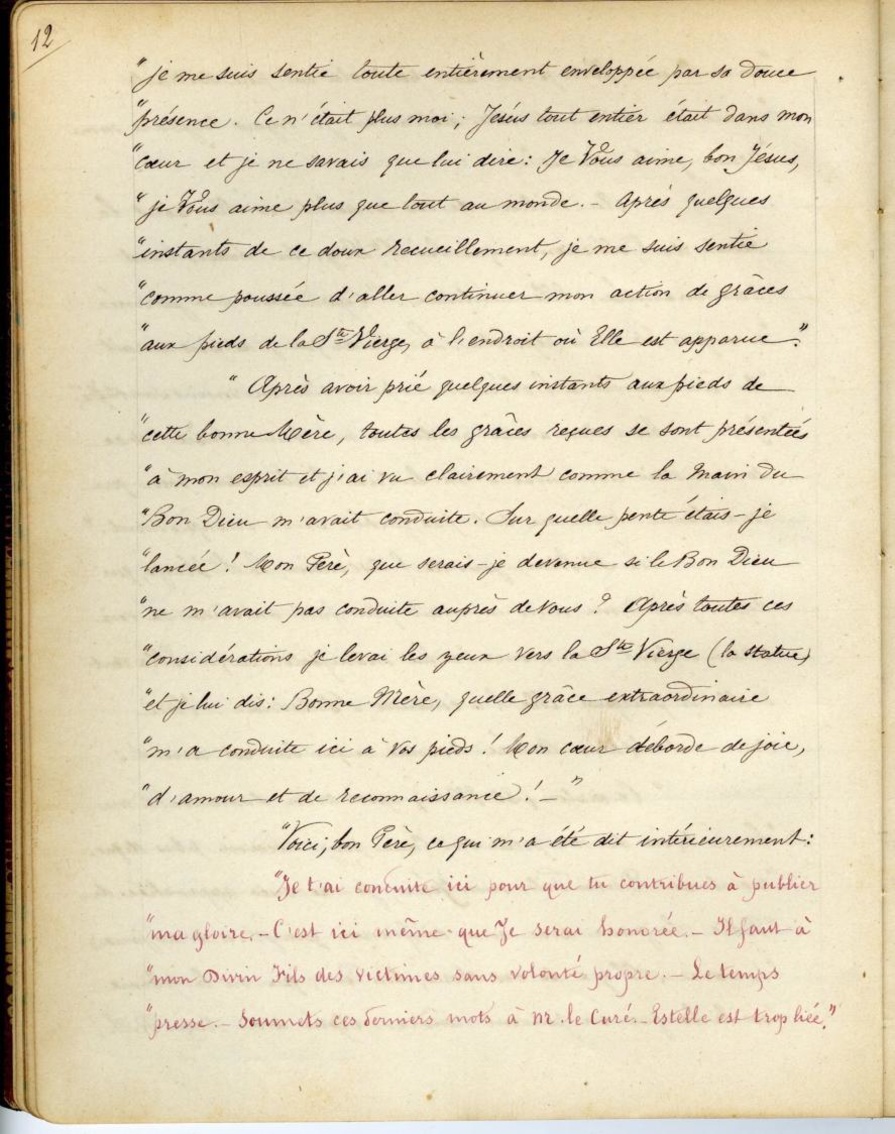 12
"je me suis sentie toute entièrement enveloppée par sa douce
"présence. Ce n'était plus moi; Jésus tout entier était dans mon
"cœur et je ne savais que lui dire: Je Vous aime, bon Jésus,
"je Vous aime plus que tout au monde. - Après quelques
"instants de ce doux recueillement, je me suis sentie
"comme poussée d'aller continuer mon action de grâces
"aux pieds de la Ste Vierge, à l'endroit où Elle est apparue."
"Après avoir prié quelques instants aux pieds de
"cette bonne Mère, toutes les grâces reçues se sont présentées
"à mon esprit et j'ai vu clairement comme la Main du
"Bon Dieu m'avait conduite. Sur quelle pente étais-je
"lancée! Mon Père, que serais-je devenue si le Bon Dieu
"ne m'avait pas conduite auprès de vous? Après toutes ces
"considérations je levai les yeux vers la Ste Vierge (la statue)
"et je lui dis: Bonne Mère, quelle grâce extraordinaire
"m'a conduite ici à vos pieds! Mon cœur déborde de joie,
"d'amour et de reconnaissance! - "
"Voici, bon Père, ce qui m'a été dit intérieurement:
"Je t'ai conduite ici pour que tu contribues à publier
"ma gloire. - C'est ici même que Je serai honorée. - Il faut à
"mon Divin Fils des victimes sans volonté propre. - Le temps
"presse. - Soumets ces derniers mots à Mr. le Curé. - Estelle est trop liée."